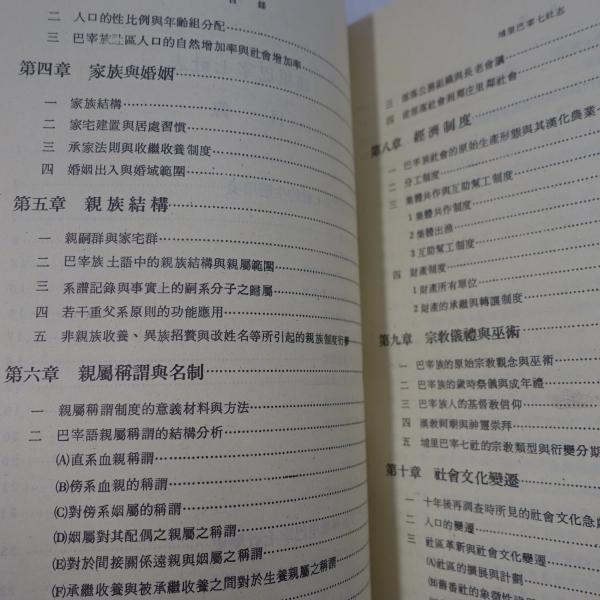 目 錄
二 人口的性比例與年齡組分配
三 巴宰族社區人口的自然增加率與社會增加率
第四章 家族與婚姻
一 家族結構
二 家宅建置與居處習慣
三 承家法則與收繼收養制度
四 婚姻出入與婚域範圍
第五章 親族結構
一 親嗣群與家宅群
二 巴宰族土語中的親族結構與親屬範圍
三 系譜記錄與事實上的嗣系分子之歸屬
四 若干重父系原則的功能應用
五 非親族收養、異族招贅與改姓名等所引起的親族制度衍變
第六章 親屬稱謂與名制
一 親屬稱謂制度的意義材料與方法
二 巴宰語親屬稱謂的結構分析
(A)直系血親稱謂
(B)傍系血親的稱謂
(C)對傍系姻屬的稱謂
(D)姻屬對其配偶之親屬之稱謂
(E)對於間接關係遠親與姻屬之稱謂
(F)承繼收養與被承繼收養之間對於生養親屬之稱謂
埔里巴宰七社志
三 部落公務組織與長老會議
四 從部落社會到鄉庄里鄰社會
第八章 經濟制度
一 巴宰族社會的原始生產形態與其漢化農業
二 分工制度
三 集體共作與互助幫工制度
1 集體共作制度
2 集體出漁
3 互助幫工制度
四 財產制度
1 財產所有單位
2 財產的承繼與轉讓制度
第九章 宗教儀禮與巫術
一 巴宰族的原始宗教觀念與巫術
二 巴宰族的歲時祭儀與成年禮
三 巴宰族人的基督教信仰
四 漢教祠廟與神靈崇拜
五 埔里巴宰七社的宗教類型與衍變分期
第十章 社會文化變遷
一 十年後再調查時所見的社會文化急
二 人口的變遷
三 社區革新與社會文化變遷
(A)社區的擴展與計劃
(B)舊番社的象徵性